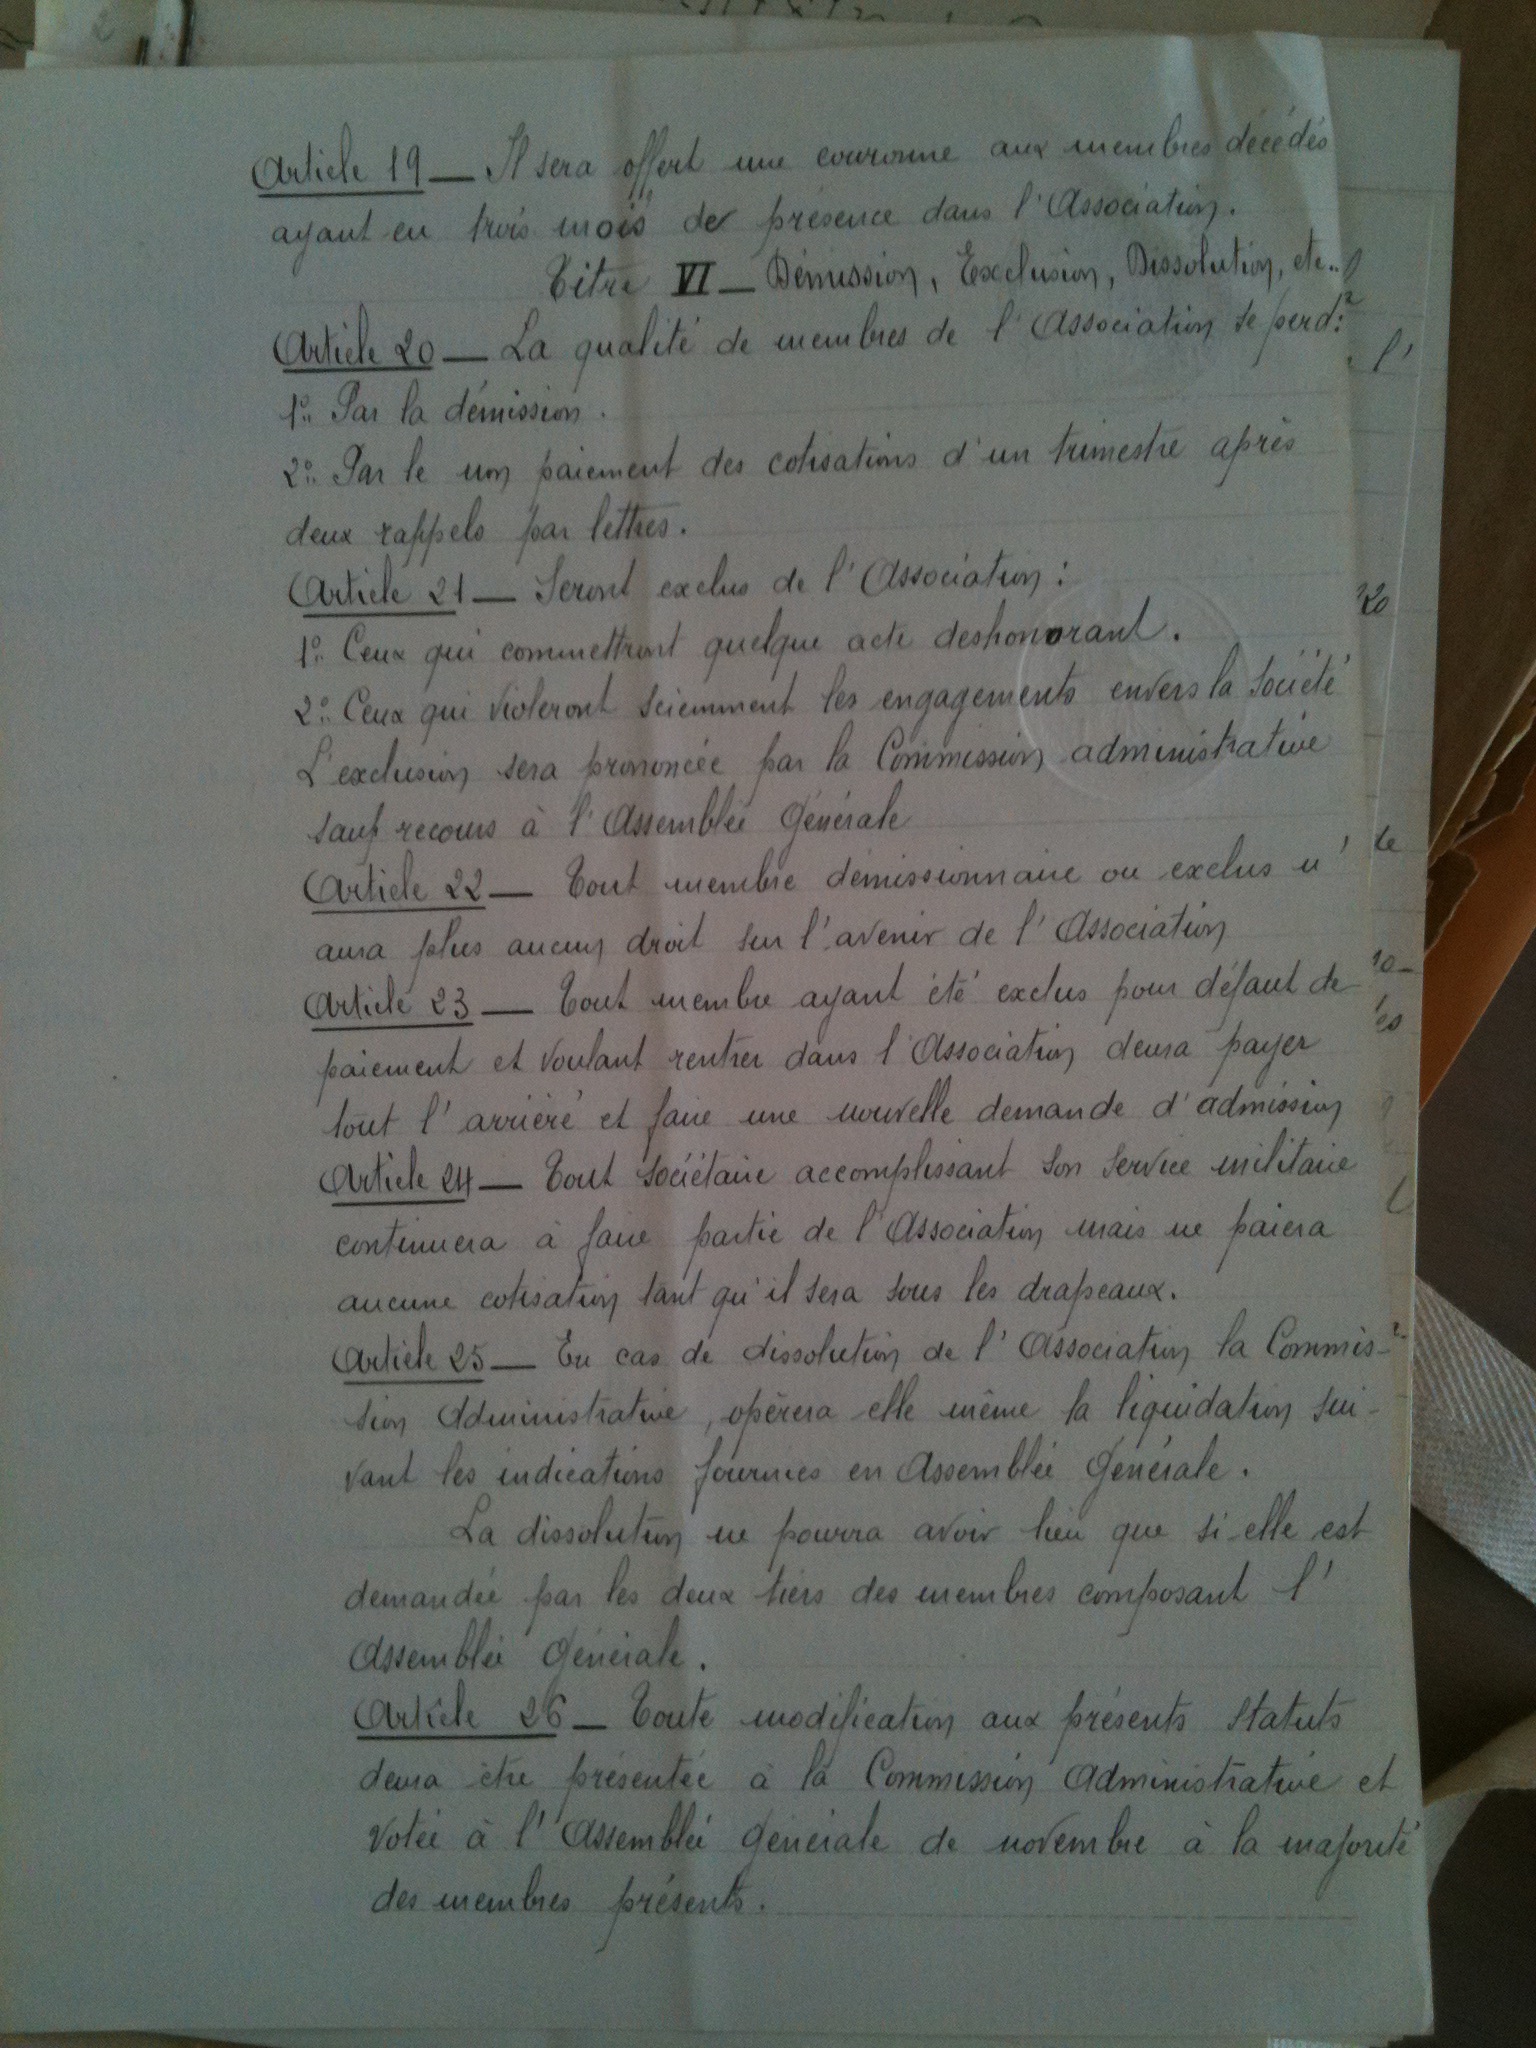 Article 19 — Il sera offert une couronne aux membres décédés
ayant eu trois mois de présence dans l'Association.
Titre VI — Démission, Exclusion, Dissolution, etc..
Article 20 — La qualité de membres de l'Association se perd:
1º. Par la démission.
2º. Par le non paiement des cotisations d'un trimestre après
deux rappels par lettres.
Article 21 — Seront exclus de l'Association:
1º. Ceux qui commettront quelque acte deshonorant.
2º. Ceux qui violeront sciemment les engagements envers la Société
L'exclusion sera prononcée par la Commission administrative
sauf recours à l'Assemblée Générale
Article 22 — Tout membre démissionnaire ou exclus n'
aura plus aucun droit sur l'avenir de l'Association
Article 23 — Tout membre ayant été exclus pour défaut de
paiement et voulant rentrer dans l'Association devra payer
tout l'arriéré et faire une nouvelle demande d'admission
Article 24 — Tout sociétaire accomplissant son service militaire
continuera à faire partie de l'Association mais ne paiera
aucune cotisation tant qu'il sera sous les drapeaux.
Article 25 — En cas de dissolution de l'Association la Commis-
sion Administrative, opérera elle même la liquidation sui-
vant les indications fournies en Assemblée Générale.
La dissolution ne pourra avoir lieu que si elle est
demandée par les deux tiers des membres composant l'
Assemblée Générale.
Article 26 — Toute modification aux présents Statuts
devra être présentée à la Commission Administrative et
votée à l'Assemblée Générale de novembre à la majorité
des membres présents.